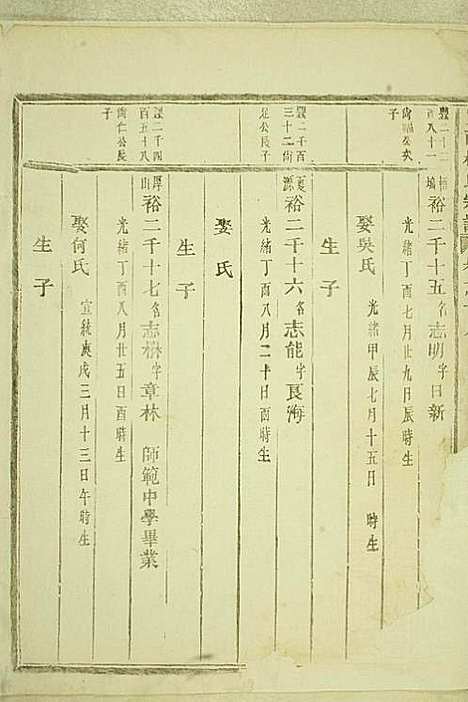 裕二千十五名志明字日新
光緒丁酉七月廿九日辰時生
娶吳氏 光緒甲辰七月十五日 時生
生子
豐二千百
三十二尙
足公長子
裕二千十六名志能字良海
光緒丁酉八月二十日酉時生
娶 氏
生子
豐二千四
百五十八
尙仁公長
子
厚
山
裕二千十七名志林字章林 師範中學畢業
光緒丁酉八月廿五日酉時生
娶何氏 宣統庚戌三月十三日午時生
生子